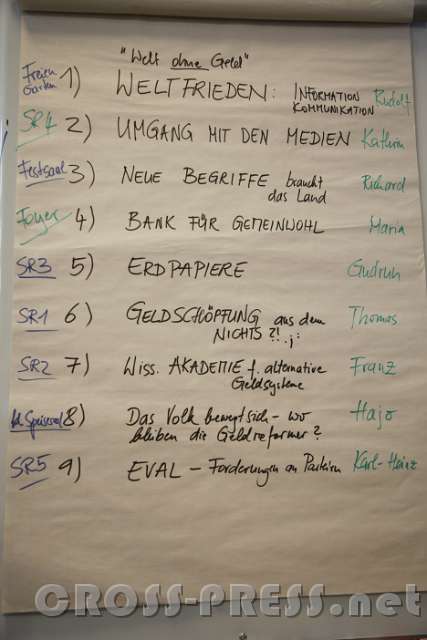 "Welt ohne Geld"
Freier Garten 1) WELTFRIEDEN: INFORMATION KOMMUNIKATION Rudolf
SR4 2) UMGANG MIT DEN MEDIEN Kathrin
Festsaal 3) NEUE BEGRIFFE braucht das Land Richard
Foyer 4) BANK FÜR GEMEINWOHL Maria
SR3 5) ERDPAPIERE Gudrun
SR1 6) GELDSCHÖPFUNG aus dem NICHTS?! Thomas
SR2 7) WISS. AKADEMIE f. alternative Geldsysteme Franz
Speisesaal 8) Das Volk bewegt sich - wo bleiben die Geldreformer? Hajo
SR5 9) EVAL - Forderungen an Parteien Karl-Heinz
CROSS-PRESS.net